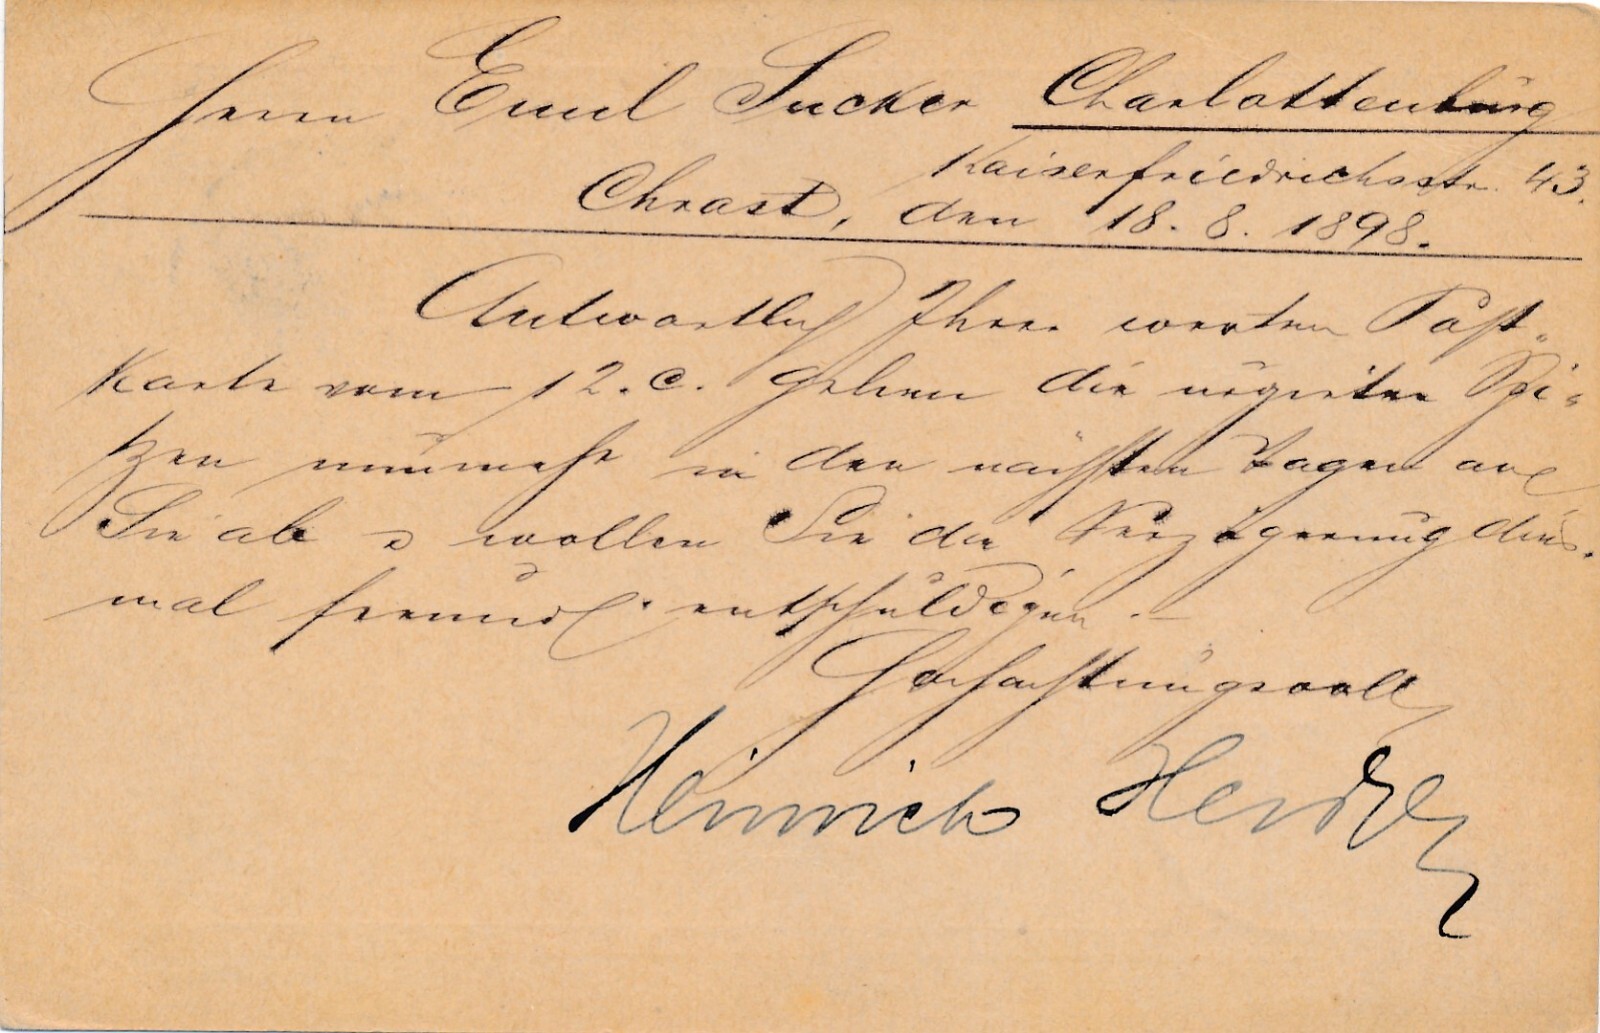 Herrn Emil Sucker Charlottenburg
Kaiserfriedrichstr. 43.
Chrast, den 18. 8. 1898.
Antwortlich Ihrer werten Post-
karte vom 12. c. gehen die urgirten Spi-
tzen nunmehr in den nächsten Tagen an
Sie ab & wollen Sie die Verzögerung dies-
mal freundl. entschuldigen. –
Hochachtungsvoll
Heinrich